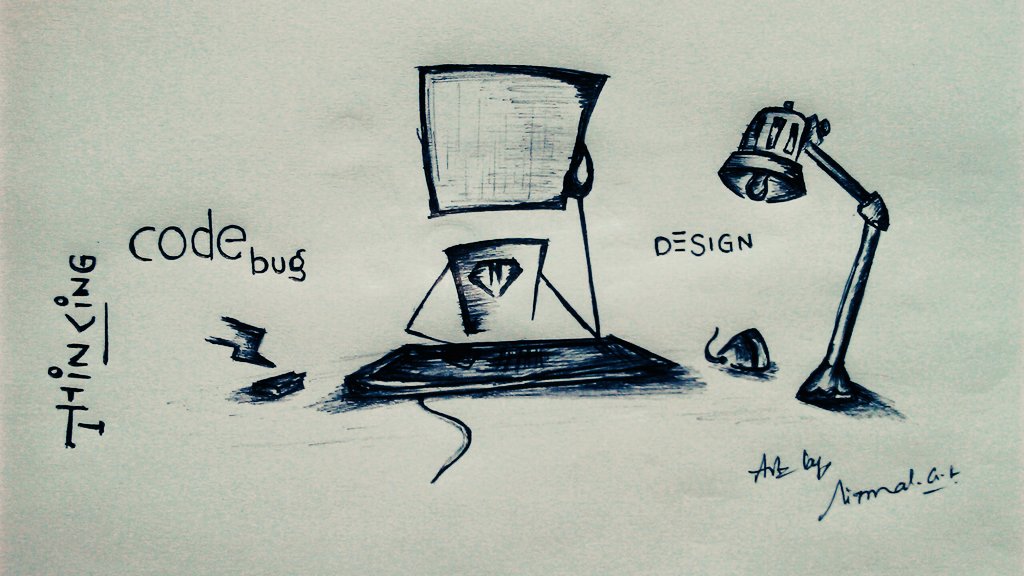 THiNKiNG
code
bug
DESIGN
Art by
Nirmal.G.t